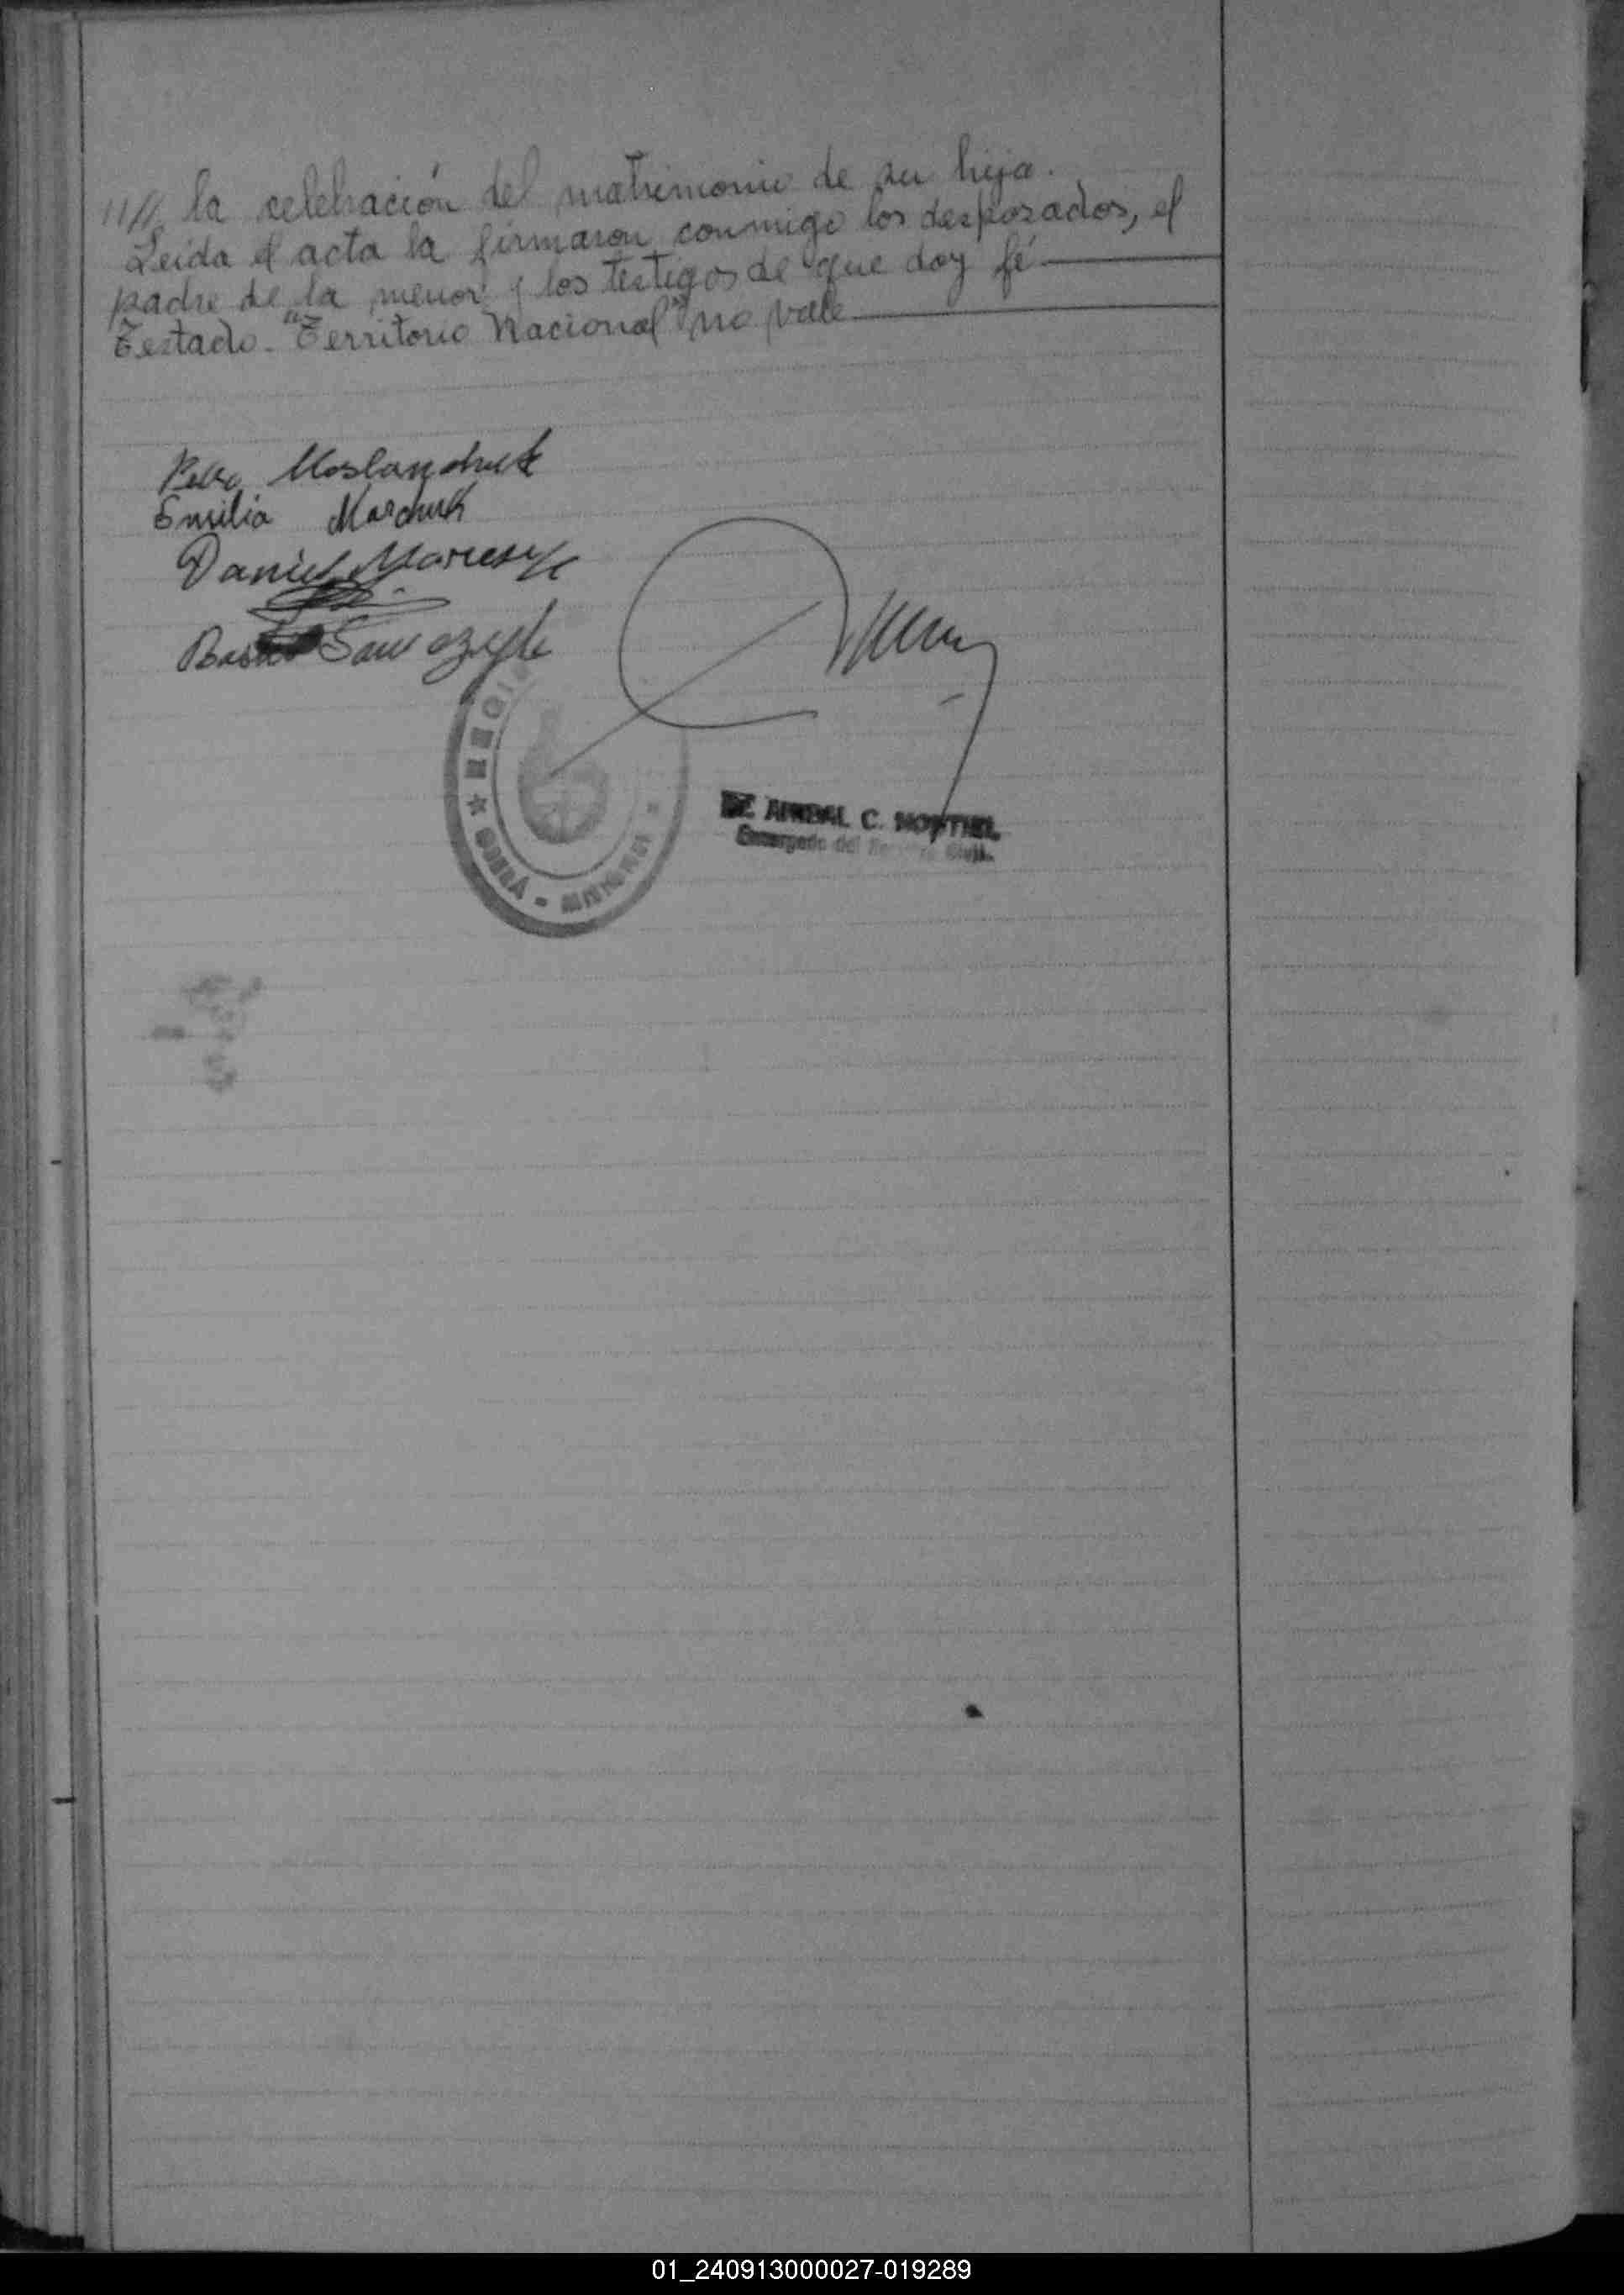 //// la celebración del matrimonio de su hija.
Leída el acta la firmaron conmigo los desposados, el
padre de la menor y los testigos de que doy fé
Testado. "Territorio Nacional" no vale
Emilia Marchuk
Daniel
C. MONTIEL
Encargado del Registro Civil.
OBERÁ - MISIONES
01_240913000027-019289